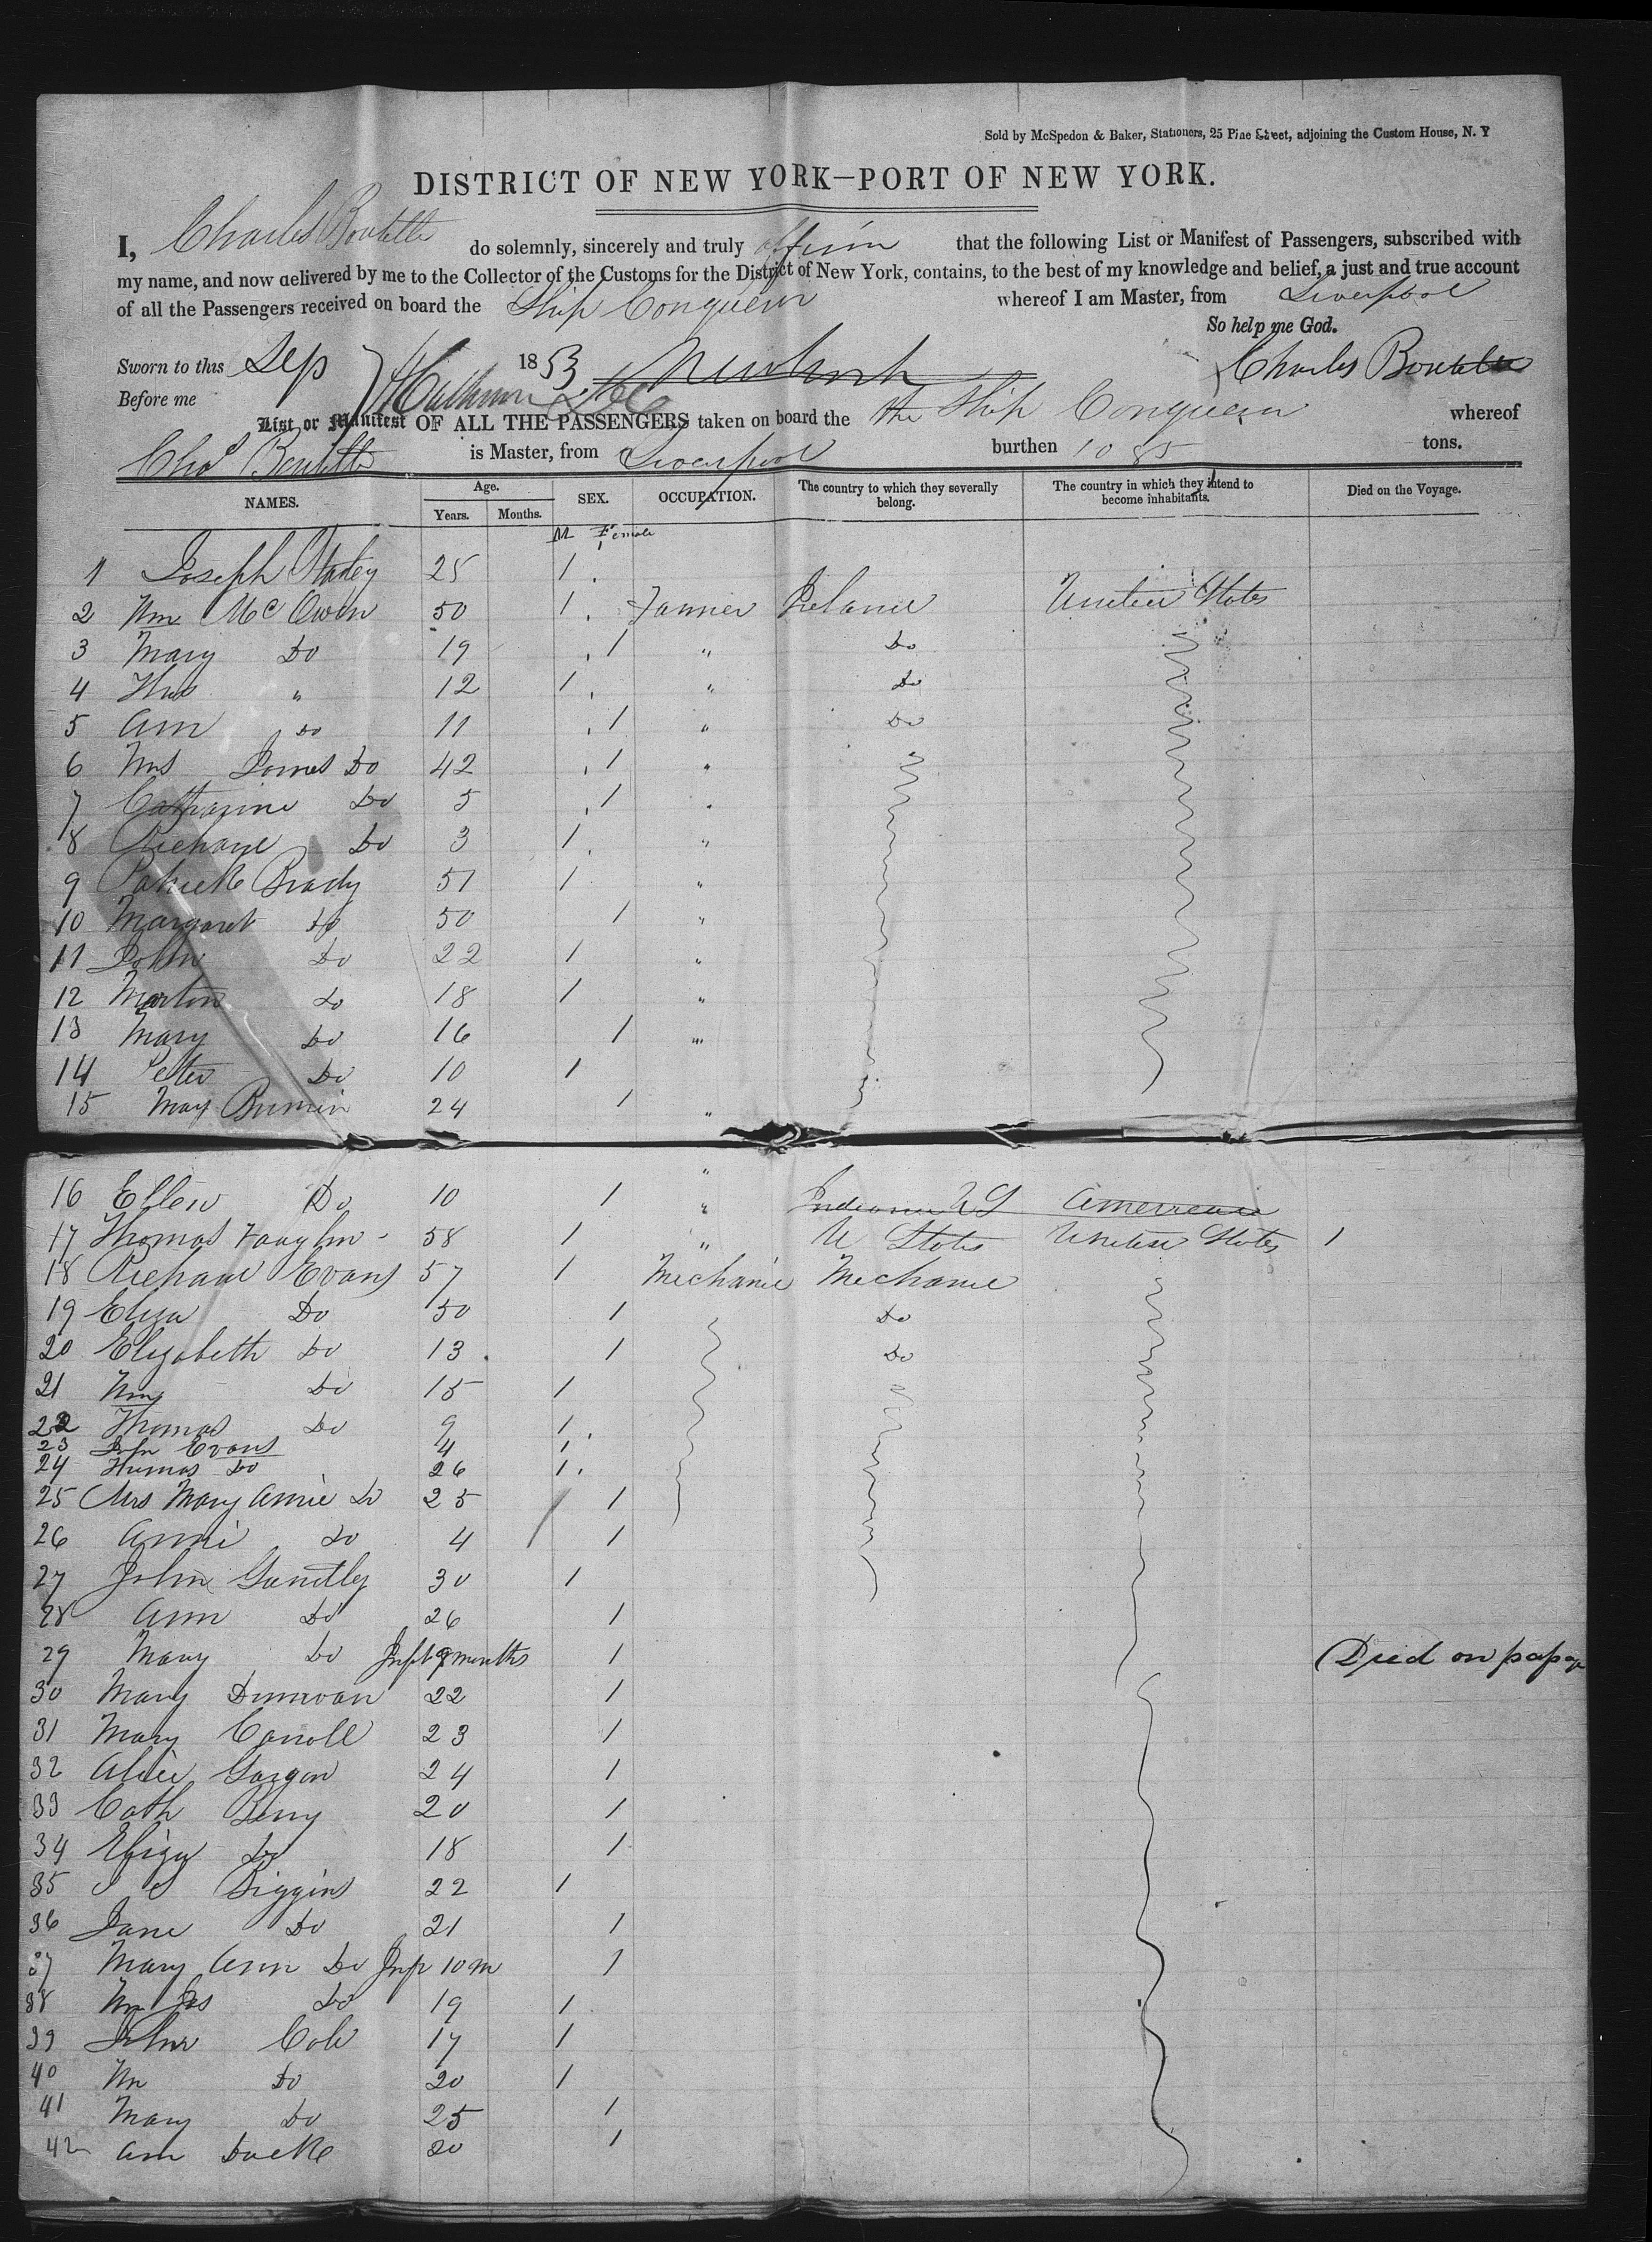 Sold by McSpedon & Baker, Stationers, 25 Pine Street, adjoining the Custom House, N. Y
DISTRICT OF NEW YORK—PORT OF NEW YORK.
I, Charles Boutelle do solemnly, sincerely and truly affirm that the following List or Manifest of Passengers, subscribed with
my name, and now delivered by me to the Collector of the Customs for the District of New York, contains, to the best of my knowledge and belief, a just and true account
of all the Passengers received on board the Ship Conqueror whereof I am Master, from Liverpool
So help me God.
Sworn to this Sep 1853 Charles Boutelle
Before me
List or Manifest OF ALL THE PASSENGERS taken on board the the Ship Conqueror whereof
Chas Boutelle is Master, from Liverpool burthen 1085 tons.
NAMES. Age. Years. Months. SEX. OCCUPATION. The country to which they severally belong. The country in which they intend to become inhabitants. Died on the Voyage.
M Female
1 Joseph 25 1
2 Wm McOwen 50 1 Farmer Ireland United States
3 Mary Do 19 1 " Do
4 Thos " 12 1 " Do
5 Ann Do 11 1 " Do
6 Mrs James Do 42 1 "
7 Catharine Do 5 1 "
8 Richard Do 3 1 "
9 Patrick Brady 51 1 "
10 Margaret Do 50 1 "
11 John Do 22 1 "
12 Martin Do 18 1 "
13 Mary Do 16 1 "
14 Peter Do 10 1
15 Mary 24 1 "
16 Ellen Do 10 1 " Indiana US American
17 Thomas 58 1 " U States United States 1
18 Richard Evans 57 1 Mechanic Mechanic
19 Eliza Do 50 1 Do
20 Elizabeth Do 13 1 Do
21 Wm Do 15 1
22 Thomas Do 9 1
23 John Evans 4 1
24 Thomas Do 26 1
25 Mrs Mary Annie Do 25 1
26 Anni Do 4 1
27 John 30 1
28 Ann Do 26 1
29 Mary Do Inft 9 months 1 Died on passage
30 Mary Dunivan 22 1
31 Mary Carroll 23 1
32 Alice Gargan 24 1
33 Cath Berry 20 1
34 Eliza Do 18 1
35 Biggins 22 1
36 Jane Do 21 1
37 Mary Ann Do Inf 10 m 1
38 Wm Jas Do 19 1
39 John Cole 17 1
40 Wm Do 20 1
41 Mary Do 25 1
42 Ann 20 1